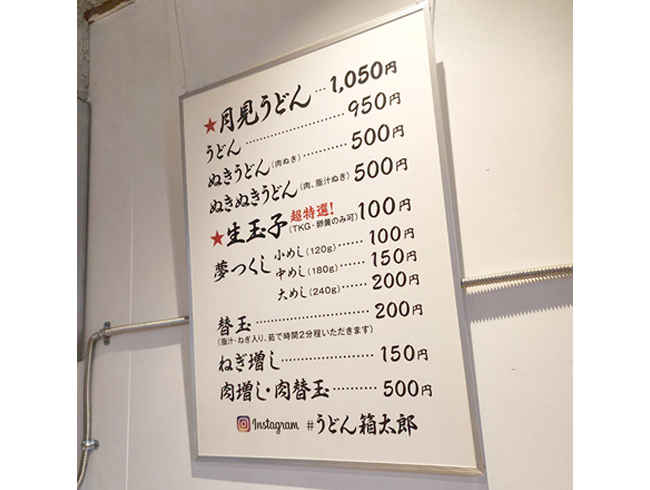 ★月見うどん…1,050円
うどん………………950円
ぬきうどん(肉ぬき)………500円
ぬきぬきうどん(肉、脂汁ぬき)500円
★生玉子 超特選!(TKG・卵黄のみ可)100円
夢つくし 小めし(120g)……100円
中めし(180g)……150円
大めし(240g)……200円
替玉………………200円
(脂汁・ねぎ入り、茹で時間2分程いただきます)
ねぎ増し………………150円
肉増し・肉替玉………500円
Instagram #うどん箱太郎